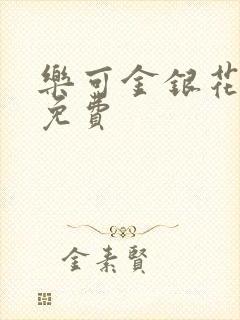 樂可金銀花
免費
金素賢